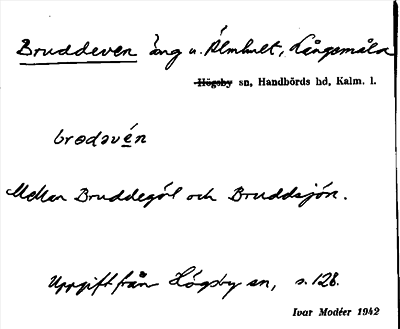 Bruddeven äng u. Älmhult, Långemåla
Högsby sn, Handbörds hd, Kalm. l.
brødəvén
Mellan Bruddegöl och Bruddsjön.
Uppgift från Högsby sn, s. 128.
Ivar Modéer 1942